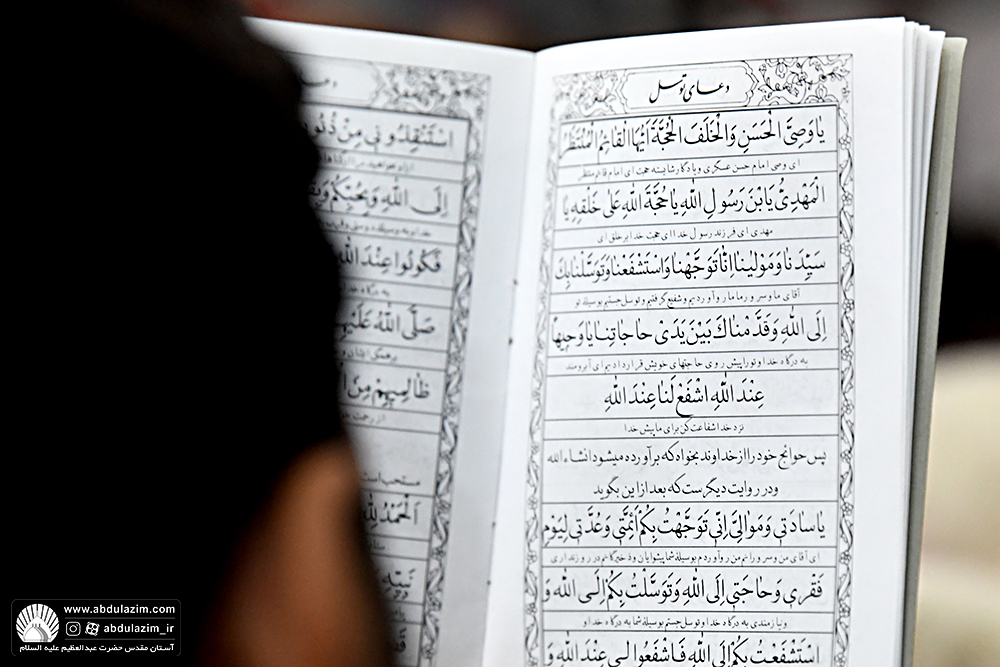 دعای توسل
یٰا وَصِیَّ الْحَسَنِ وَالْخَلَفَ الْحُجَّةَ اَیُّهَا الْقٰائِمُ الْمُنْتَظَرُ
ای وصی امام حسن عسکری و یادگار شایسته حجت ای امام قائم منتظر
الْمَهْدِیُّ یَابْنَ رَسُولِ اللهِ یٰا حُجَّةَ اللهِ عَلیٰ خَلْقِهِ یٰا
مهدی ای فرزند رسول خدا ای حجت خدا بر خلق ای
سَیِّدَنٰا وَمَوْلیٰنٰا اِنّٰا تَوَجَّهْنٰا وَاسْتَشْفَعْنٰا وَتَوَسَّلْنٰا بِکَ
آقای ما و سرور ما ما رو آوردیم و شفیع گرفتیم و توسل جستیم بوسیله تو
اِلَی اللهِ وَقَدَّمْنٰاکَ بَیْنَ یَدَیْ حٰاجٰاتِنٰا یٰا وَجیهاً
به درگاه خدا و تو را پیش روی حاجتهای خویش قرار دادیم ای آبرومند
عِنْدَ اللهِ اشْفَعْ لَنٰا عِنْدَ اللهِ
نزد خدا شفاعت کن برای ما پیش خدا
پس حوائج خود را از خداوند بخواه که برآورده میشود انشاء الله
و در روایت دیگرست که بعد از این بگوید
یٰا سٰادَتی وَمَوٰالِیَّ اِنّی تَوَجَّهْتُ بِکُمْ اَئِمَّتی وَعُدَّتی لِیَوْمِ
ای آقای من و سرورانم من رو آوردم بوسیله شما پیشوایان و ذخیره‌گانم در روز نداری
فَقْری وَحٰاجَتی اِلَی اللهِ وَتَوَسَّلْتُ بِکُمْ اِلَی اللهِ وَ
و نیازمندی به درگاه خدا و توسل جستم بوسیله شما به درگاه خدا و
اسْتَشْفَعْتُ بِکُمْ اِلَی اللهِ فَاشْفَعُوا لی عِنْدَ اللهِ وَ
اسْتَنْقِذُونی مِنْ
اِلَی اللهِ وَبِحُبِّکُمْ
فَکُونُوا عِنْدَ الله
به درگاه خدا
صَلَّی اللهُ عَلَیْهِمْ
ظٰالِمیهِمْ مِنَ
از رحمت
مستحب است
اَلْحَمْدُ لِله
www.abdulazim.com
abdulazim_ir
آستان مقدس حضرت عبدالعظیم علیه السلام